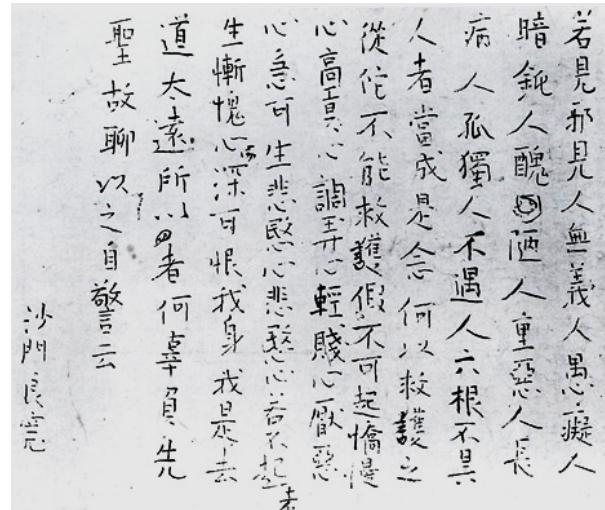 若見邪見人無義人愚癡人
暗鈍人醜陋人重惡人長
病人孤獨人不遇人六根不具
人者當成是念何以救護之
從佗不能救護假不可起憍慢
心高貢心調弄心輕賤心厭惡
心急可生悲愍心悲愍心若不起者
生慚愧心深可恨我身我是去
道太遠所以者何辜負先
聖故聊以之自警云
沙門良寛